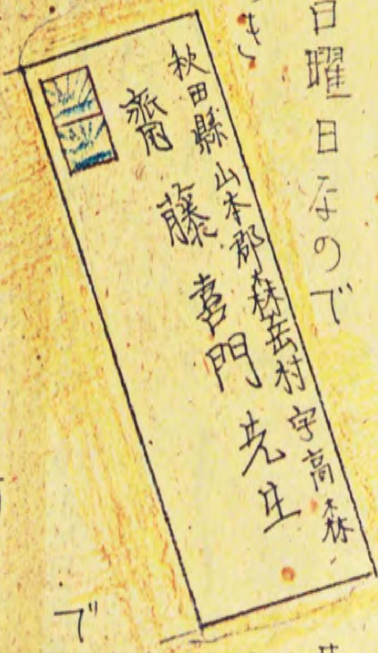 日曜日なので
き
秋田縣山本郡森岳村字高森
齋藤喜門先生
で